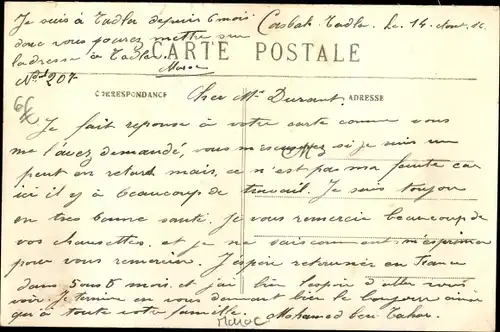 Je suis à Tadler depuis 6 mois. Casbah-Tadla. Le 14 Aout 16
donc vous pouvez mettre sur
ladresse à Tadler.
Maroc
CARTE POSTALE
No 207
CORRESPONDANCE
ADRESSE
Cher Mr Durant.
Je fait reponse à votre carte comme vous
me l'avez demandé, vous m'escusez si je suis un
peut en retard mais, ce n'est pas ma faute car
ici il y à beaucoup de travail. Je suis toujour
en tres bonne santé. Je vous remercie beaucoup de
vos chausettes, et je ne sais comment m'esprimer
pour vous remercier. J'espère retourner en France
dans 5 ou 6 mois et j'ai bien l'espoir d'aller vous
voir. Je termine en vous donnant bien le bonjour ainsi
qu'à toute votre famille. Mohamed ben Tahar.
Maroc